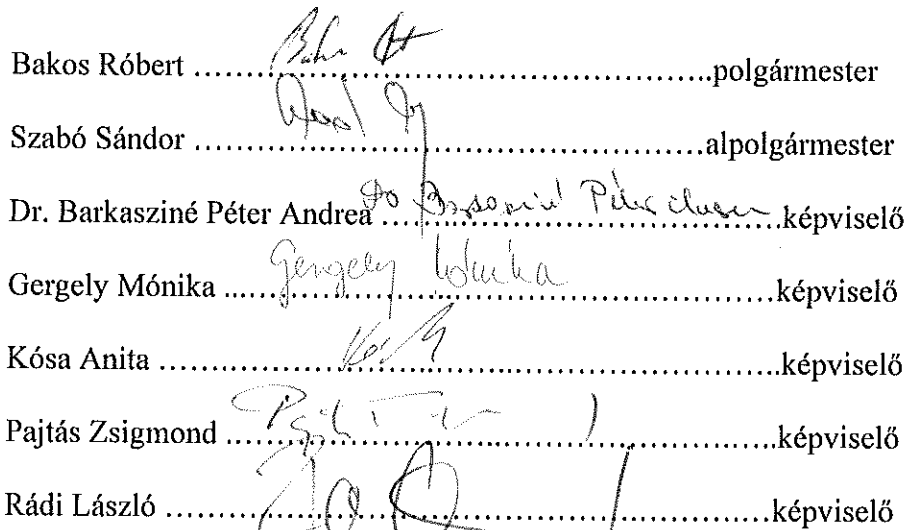 Bakos Róbert ................................................polgármester
Szabó Sándor ................................................alpolgármester
Dr. Barkasziné Péter Andrea ................................képviselő
Gergely Mónika Gergely Mónika ................................képviselő
Kósa Anita ................................................képviselő
Pajtás Zsigmond ................................................képviselő
Rádi László ................................................képviselő